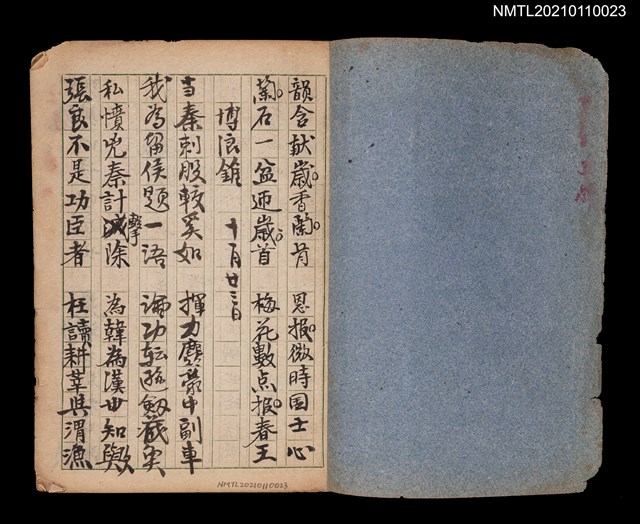 NMTL20210110023
韻含献歲香蘭肯　恩报微時国士心
蘭石一盆迎歲首　梅花數点报春王
博浪錐　十一月廿三日
当秦刺股較奚如　揮力鏖中副車
我為留侯題一语　功転劔蔵
私憤兇秦計擊除　為韓為漢世知與
張良不是功臣者　枉讀耕莘與渭漁
NMTL20210110023